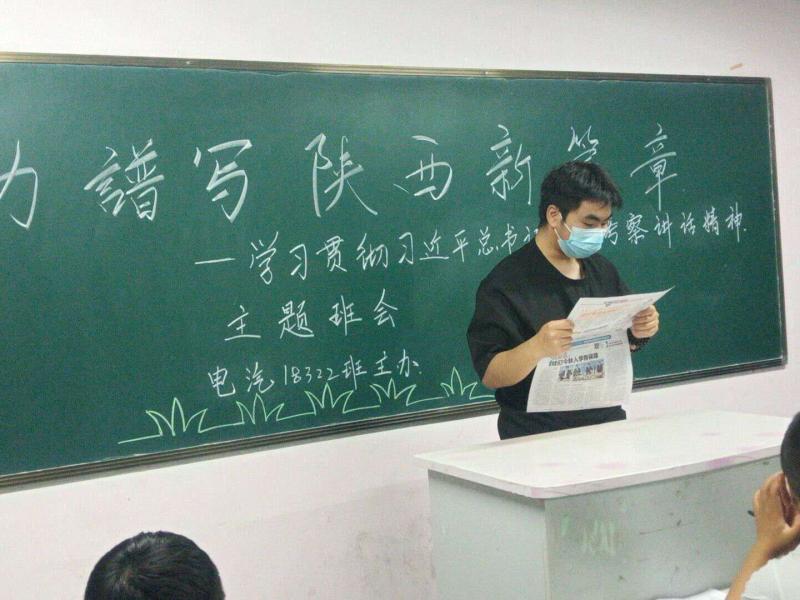 力 譜写陕西新 章
—学习贯彻习近平总书 考察讲话精神.
主题班会
电汽18322班主办